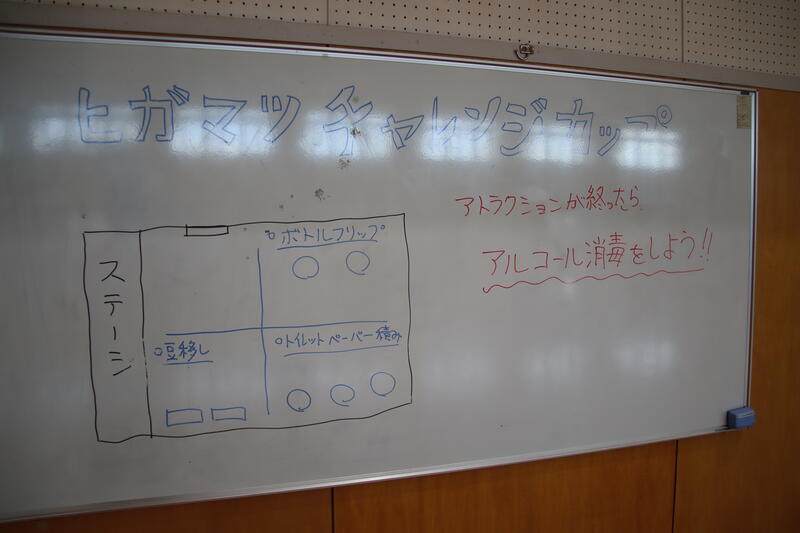 ヒガマツ チャレンジカップ
アトラクションが終ったら
アルコール消毒をしよう!!
ステージ
○ボトルフリップ
○豆移し
○トイレットペーパー積み